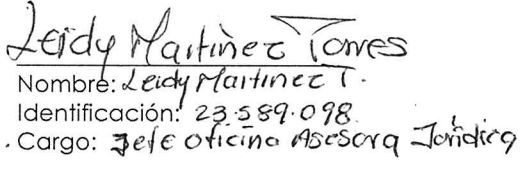 Leidy Martinez Torres
Nombre: Leidy Martinez T.
Identificación: 23.589.098
Cargo: Jefe Oficina Asesora Jurídica